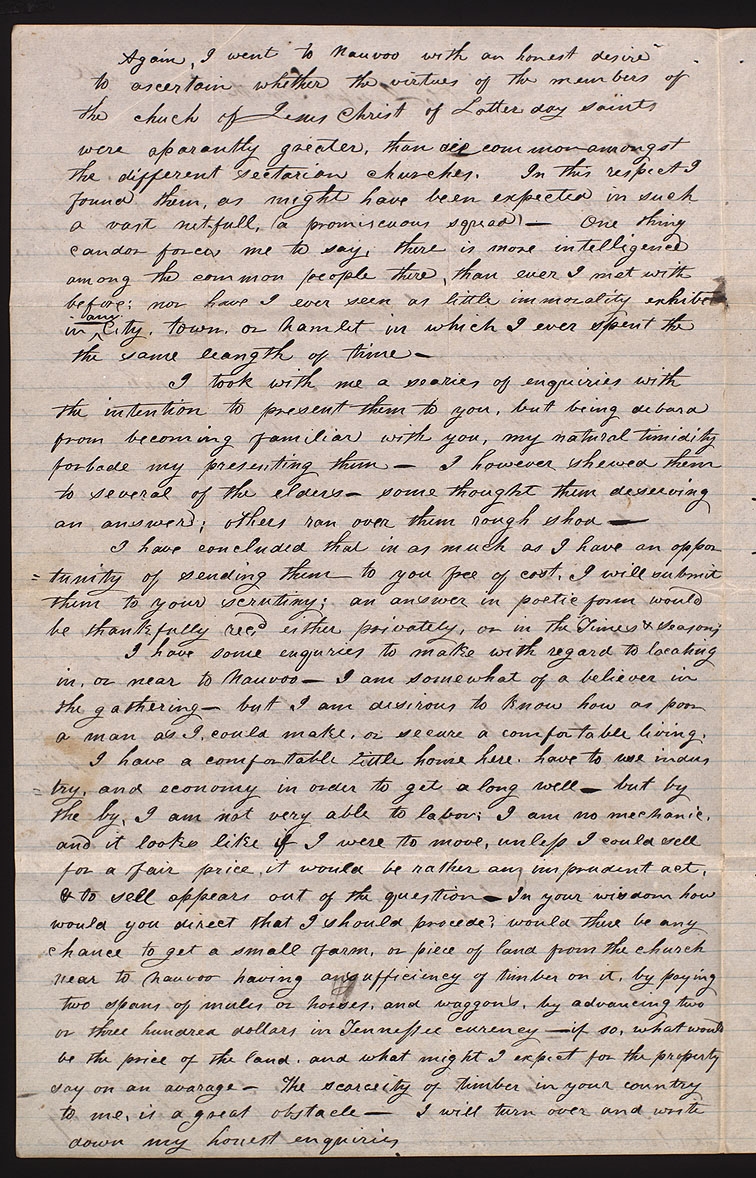 Again, I went to Nauvoo with an honest desire
to ascertain whether the virtues of the members of
the chuch of Jesus Christ of Latter day saints
were aparantly greater, than are common amongst
the different sectarian churches. In this respect I
found them, as might have been expected in such
a vast net-full, (a promiscuous squad) — One thing
candor forces me to say, there is more intelligence
among the common people there, than ever I met with
before; nor have I ever seen as little immorality exhibited
in any City, town, or hamlet in which I ever spent the
the same leangth of time —
I took with me a searies of enquiries with
the intention to present them to you, but being debard
from becoming familiar with you, my natural timidity
forbade my presenting them — I however shewed them
to several of the elders — some thought them deserving
an answer; others ran over them rough shod —
I have concluded that in as much as I have an oppor
=tunity of sending them to you free of cost, I will submit
them to your scrutiny; an answer in poetic form would
be thankfully recd either privately, or in the Times & seasons
I have some enquries to make with regard to locating
in, or near to Nauvoo — I am somewhat of a believer in
the gathering — but I am desirous to know how as poor
a man as I, could make, or secure a comfortable living.
I have a comfortable little home here. have to use indus
=try, and economy in order to get a long well — but by
the by, I am not very able to labor; I am no mechanic,
and it looks like if I were to move, unless I could sell
for a fair price, it would be rather an imprudent act,
& to sell appears out of the question — In your wisdom how
would you direct that I should procede? would there be any
chance to get a small farm, or piece of land from the church
near to Nauvoo having a sufficiency of timber on it, by paying
two spans of mules or horses, and waggons, by advancing two
or three hundred dollars in Tennessee currency — if so, what would
be the price of the land. and what might I expect for the property
say on an avarage — The scarceity of timber in your country
to me, is a great obstacle — I will turn over and write
down my honest enquiries